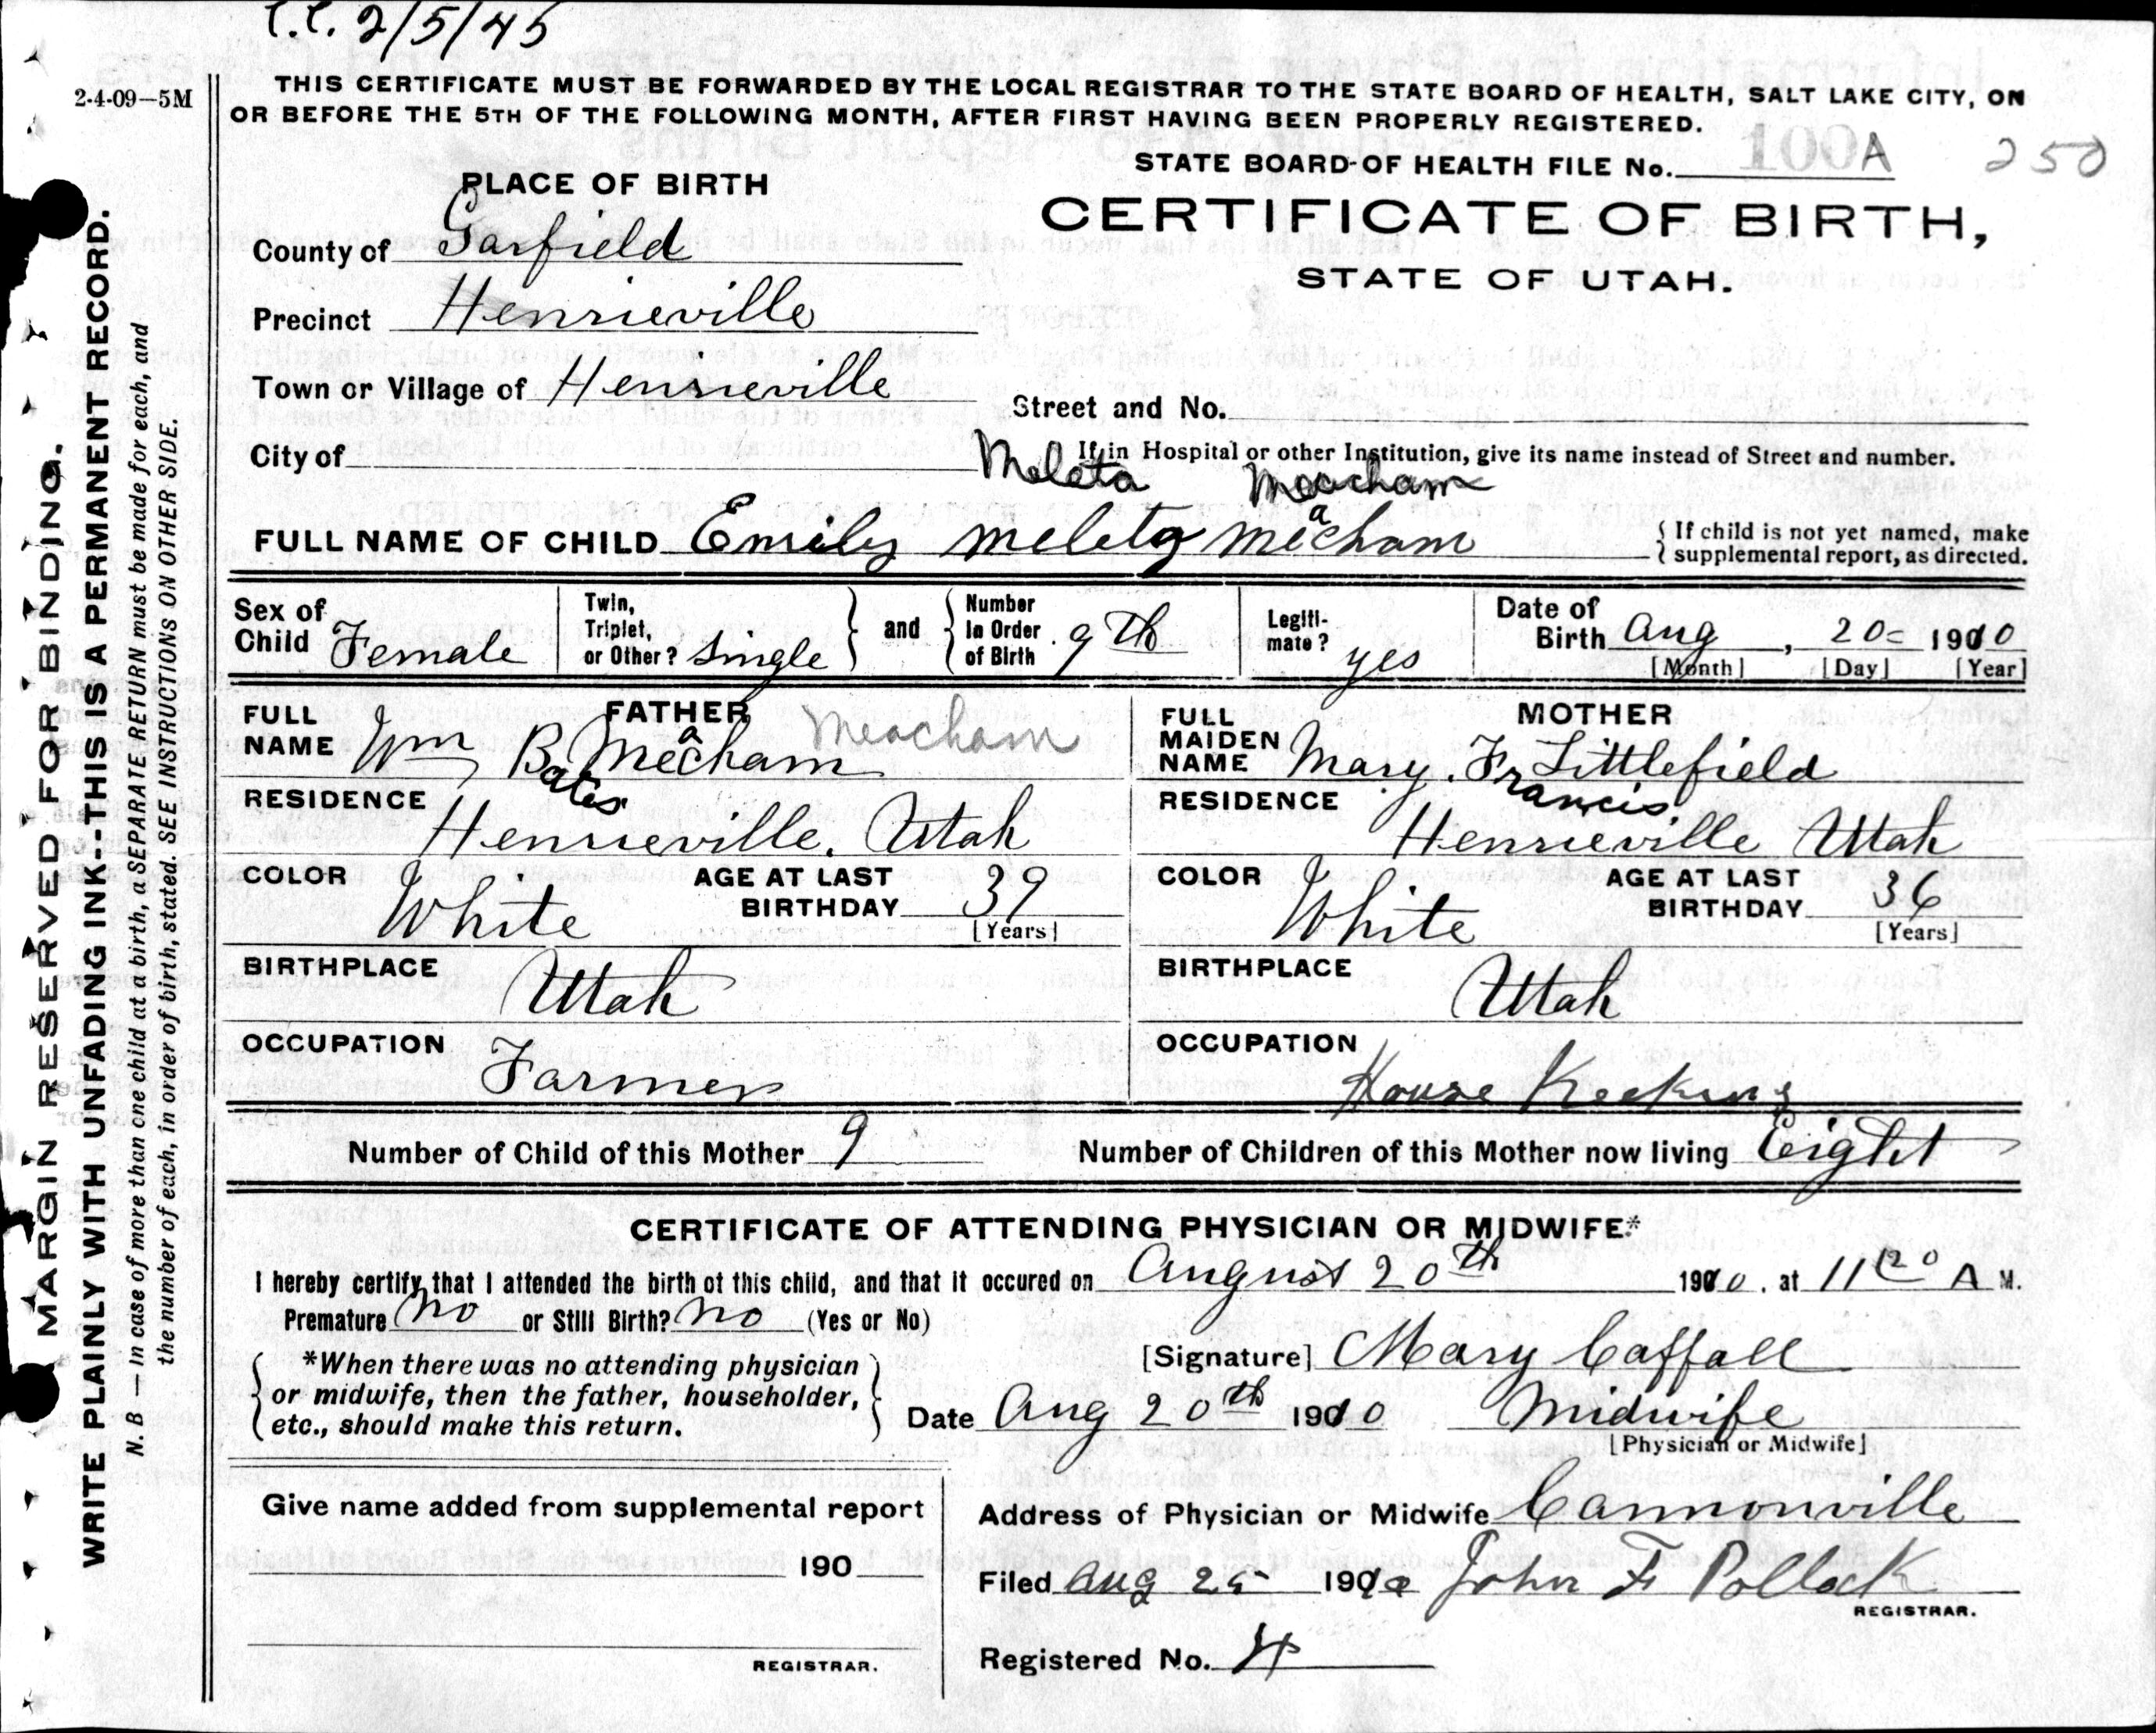 C.C. 2/5/45
2-4-09—5M
THIS CERTIFICATE MUST BE FORWARDED BY THE LOCAL REGISTRAR TO THE STATE BOARD OF HEALTH, SALT LAKE CITY, ON
OR BEFORE THE 5TH OF THE FOLLOWING MONTH, AFTER FIRST HAVING BEEN PROPERLY REGISTERED.
STATE BOARD OF HEALTH FILE No. 100A 250
PLACE OF BIRTH
CERTIFICATE OF BIRTH,
STATE OF UTAH.
County of Garfield
Precinct Henrieville
Town or Village of Henrieville
Street and No.
City of
If in Hospital or other Institution, give its name instead of Street and number.
Meleta Meacham
FULL NAME OF CHILD Emily Meleta Meacham
{ If child is not yet named, make
supplemental report, as directed.
Sex of Child Female
Twin, Triplet, or Other? Single
and
Number In Order of Birth 9th
Legiti-mate? yes
Date of Birth Aug, 20 1910
[Month] [Day] [Year]
FATHER
FULL NAME Wm Bates Meacham Meacham
RESIDENCE Henrieville, Utah
COLOR White
AGE AT LAST BIRTHDAY 39
[Years]
BIRTHPLACE Utah
OCCUPATION Farmer
MOTHER
FULL MAIDEN NAME Mary. Fr Littlefield
Francis.
RESIDENCE Henrieville Utah
COLOR White
AGE AT LAST BIRTHDAY 36
[Years]
BIRTHPLACE Utah
OCCUPATION House Keeking
Number of Child of this Mother 9
Number of Children of this Mother now living Eight
CERTIFICATE OF ATTENDING PHYSICIAN OR MIDWIFE*
I hereby certify that I attended the birth of this child, and that it occured on August 20th 1910, at 11 20 A M.
Premature no or Still Birth? no (Yes or No)
*When there was no attending physician
or midwife, then the father, householder,
etc., should make this return.
[Signature] Mary Caffall
Date Aug 20th 1910 Midwife
[Physician or Midwife]
Give name added from supplemental report
190
REGISTRAR.
Address of Physician or Midwife Cannonville
Filed Aug 25 1910 John F Pollock
REGISTRAR.
Registered No. 4
MARGIN RESERVED FOR BINDING.
WRITE PLAINLY WITH UNFADING INK--THIS IS A PERMANENT RECORD.
N. B — In case of more than one child at a birth, a SEPARATE RETURN must be made for each, and
the number of each, in order of birth, stated. SEE INSTRUCTIONS ON OTHER SIDE.